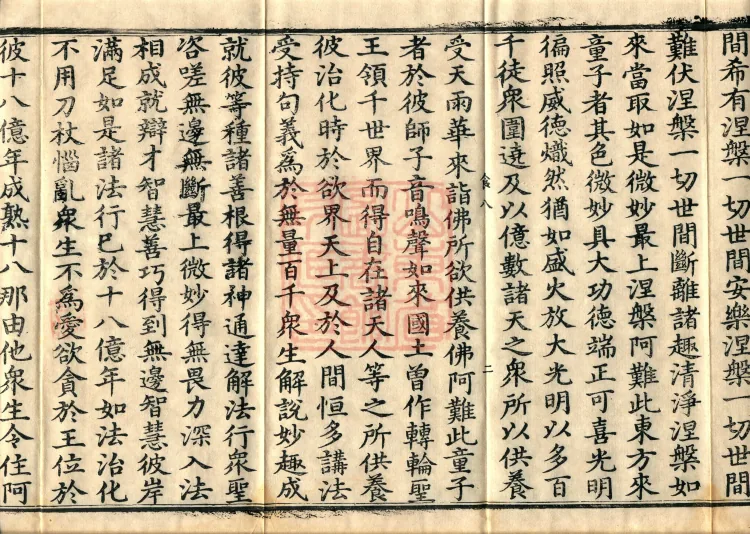 間希有涅槃一切世間安樂涅槃一切世間
難伏涅槃一切世間斷離諸趣清淨涅槃如
來當取如是微妙最上涅槃阿難此東方來
童子者其色微妙具大功德端正可喜光明
徧照威德熾然猶如盛火放大光明以多百
千徒衆圍遶及以億數諸天之衆所以供養
食八
二
受天雨華來詣佛所欲供養佛阿難此童子
者於彼師子音鳴聲如來國土曾作轉輪聖
王領千世界而得自在諸天人等之所供養
彼治化時於欲界天上及於人間恒多講法
受持句義爲於無量百千衆生解說妙趣成
就彼等種諸善根得諸神通達解法行衆聖
咨嗟無邊無斷最上微妙得無畏力深入法
相成就辯才智慧善巧得到無邊智慧彼岸
滿足如是諸法行已於十八億年如法治化
不用刀杖惱亂衆生不爲愛欲貪於王位於
彼十八億年成熟十八那由他衆生令住阿